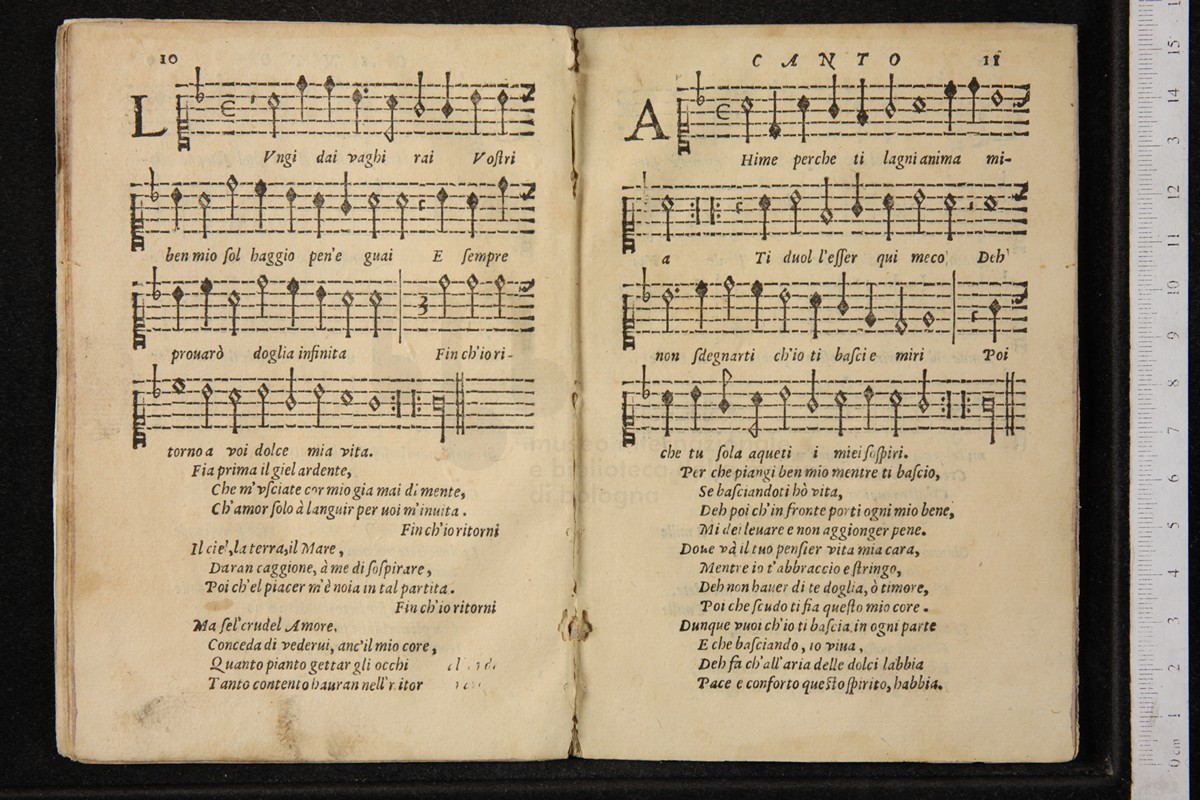 10
L
Vngi dai vaghi rai Vostri
ben mio sol haggio pen'e guai E sempre
prouarò doglia infinita Fin ch'io ri-
torno a voi dolce mia vita.
Fia prima il giel ardente,
Che m'vsciate cor mio gia mai di mente,
Ch'amor solo à languir per uoi m'inuita.
Fin ch'io ritorni
Il ciel, la terra, il Mare,
Daran caggione, à me di sospirare,
Poi ch'el piacer m'è noia in tal partita.
Fin ch'io ritorni
Ma sel' crudel Amore,
Conceda di vederui, anc'il mio core,
Quanto pianto gettar gli occhi
Tanto contento hauran nell'
CANTO 11
A
Hime perche ti lagni anima mi-
a Ti duol l'esser qui meco Deh
non sdegnarti ch'io ti basci e miri Poi
che tu sola aqueti i miei sospiri.
Per che piangi ben mio mentre ti bascio,
Se basciandoti hò vita,
Deh poi ch'in fronte porti ogni mio bene,
Mi dei leuare e non aggionger pene.
Doue và il tuo pensier vita mia cara,
Mentre io t'abbraccio e stringo,
Deh non hauer di te doglia, ò timore,
Poi che scudo ti fia questo mio core.
Dunque vuoi ch'io ti bascia in ogni parte
E che basciando, io viua,
Deh fa ch'all'aria delle dolci labbia
Pace e conforto questo spirito, habbia.
museo internazionale
e biblioteca
di bologna
0 cm 1 2 3 4 5 6 7 8 9 10 11 12 13 14 15